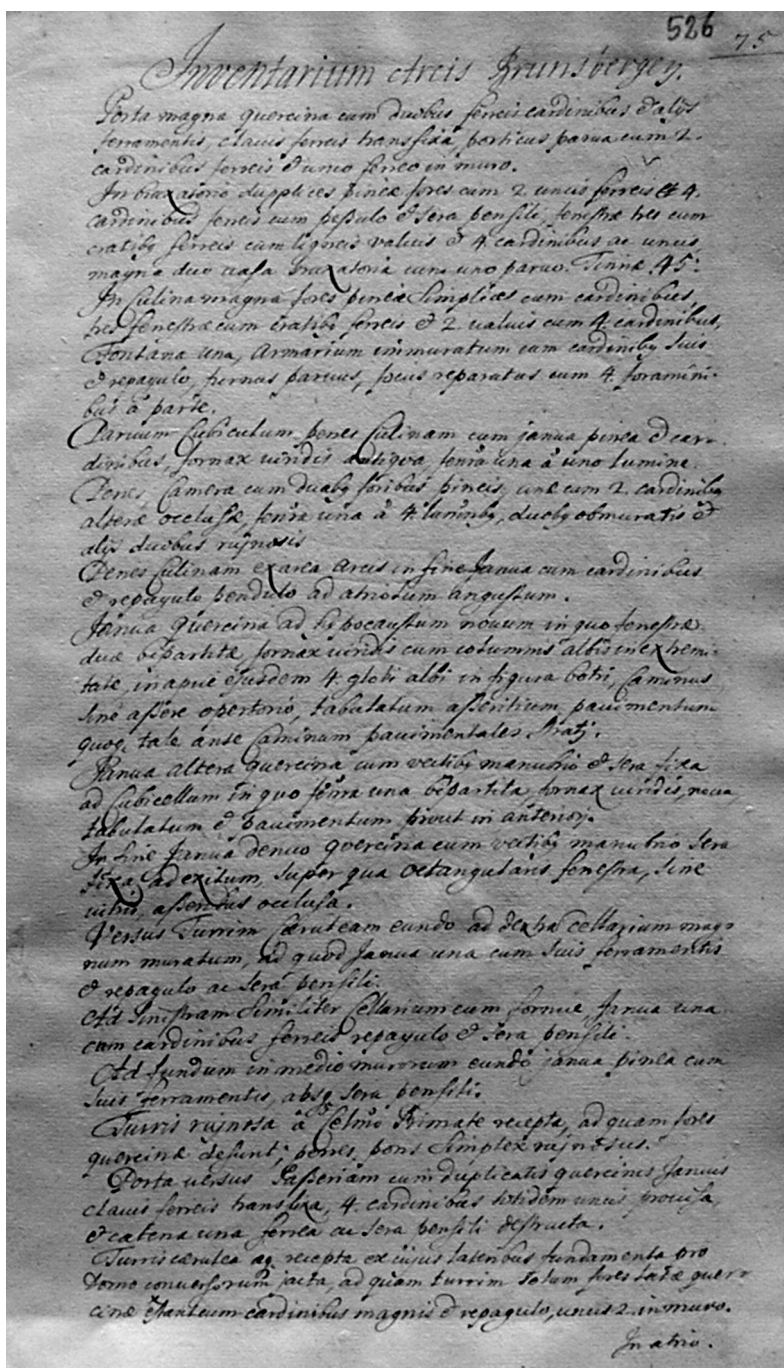 526
75
Inventarium Arcis Brunsbergen.
Porta magna quercina cum duobus ferreis cardinibus & alijs
ferramentis, clavis ferreis transfixa, porticus parva cum 2.
cardinibus ferreis & unco ferreo in muro.
In braxatorio duplices pineæ fores cum 2 uncis ferreis et 4.
cardinibus ferreis cum pessulo & sera pensili, fenestræ tres cum
cratibq ferreis cum ligneis valvis & 4 cardinibus ac uncis
magna duo vasa braxatoria cum uno parvo. Tinnæ 45.
In Culina magna fores pineæ simplices cum cardinibus,
tres fenestræ cum cratibq ferreis & 2 valvis cum 4. cardinibus,
Fontana una, Armarium immuratum cum cardinibq suis
& repagulo, furnus parvus, focus reparatus cum 4. foramini-
bus à parte.
Parvum Cubiculum penes Culinam cum janua pinea & car-
dinibus, fornax viridis antiqva, fenra una à uno lumine.
Penes Camera cum duabq foribus pineis, unæ cum 2. cardinibq
alteræ occlusæ, fenra una à 4. luminibq, duobq obmuratis &
alijs duobus rujnosis
Penes Culinam ex area Arcis in fine Janua cum cardinibus
& repagulo pendulo ad atriolum angustum.
Janua quercina ad hipocaustum novum in quo fenestræ
duæ bipartitæ, fornax viridis cum columnis albis in extremi-
tate, in apice ejusdem 4. globi albi in figura botri, Caminus
sine assere opertorio, tabulatum asseritium, pavimentum
quoq tale ante Caminum pavimentales strati.
Janua altera quercina cum vectibq manubrio & sera fixa
ad cubicellum in quo fenra una bipartita, fornax viridis, nova,
tabulatum & pavimentum prout in anteriorj.
In fine Janua denuo quercina cum vectibq manubrio sera
fixa, ad exitum, super qua octangularis fenestra, sine
vitris, asseribus occlusa.
Versus Turrim Cæruleam eundo ad dextra Cellarium mag-
num muratum, ad quod Janua una cum suis ferramentis
& repagulo ac sera pensili.
Ad sinistram similiter Cellarium cum fornice, Janua una
cum cardinibus ferreis repagulo & sera pensili.
Ad fundum in medio murorum eundo janua pinea cum
suis ferramentis, absq sera pensili.
Turris rujnosa à Celmo Primate recepta, ad quam fores
quercinæ desunt; penes, pons simplex rujnosus.
Porta versus Passeriam cum duplicatis quercinis Januis
clavis ferreis transfixa, 4. cardinibus totidem uncis provisa,
& catena una ferrea ac sera pensili destructa.
Turris cærulea recepta ex cujus lateribus fundamenta pro
Domo conversorum jacta, ad quam turrim solum fores quer-
cinæ cum cardinibus magnis & repagulo, uncis 2. in muro.
In atrio.